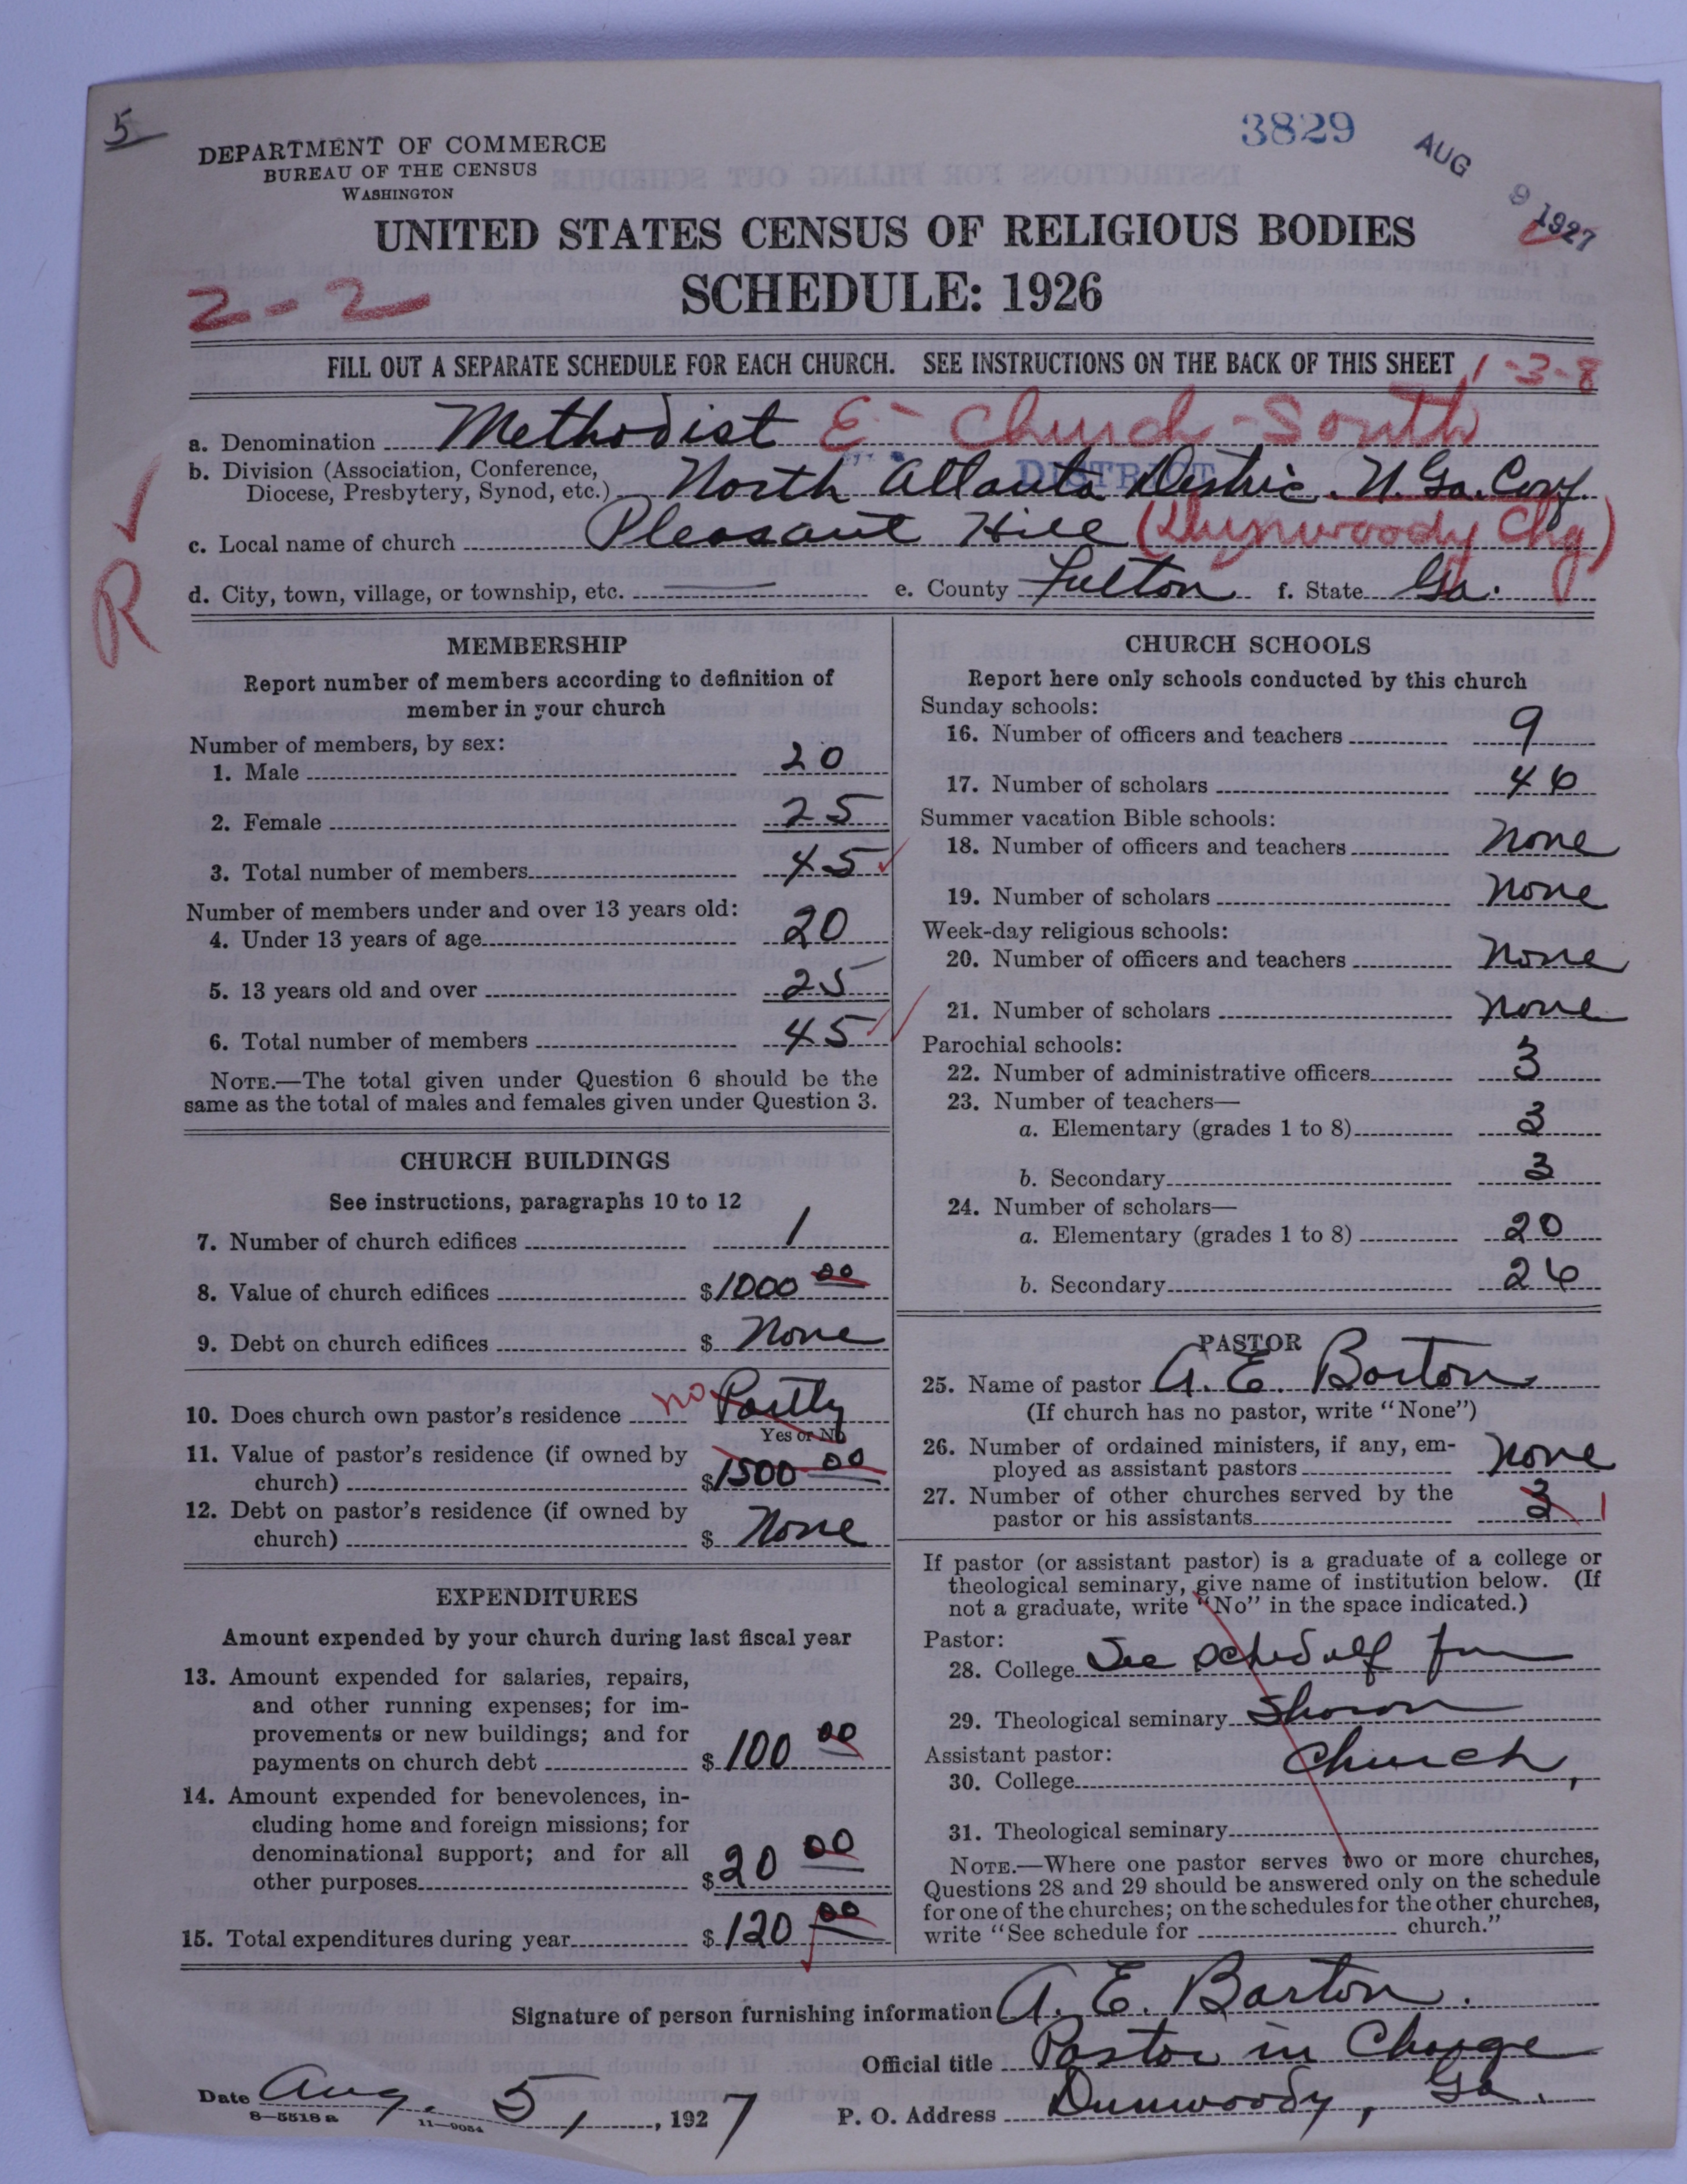 5
3829
AUG 9 1927
DEPARTMENT OF COMMERCE
BUREAU OF THE CENSUS
WASHINGTON
UNITED STATES CENSUS OF RELIGIOUS BODIES
SCHEDULE: 1926
2-2
FILL OUT A SEPARATE SCHEDULE FOR EACH CHURCH. SEE INSTRUCTIONS ON THE BACK OF THIS SHEET
1-3-8
a. Denomination Methodist E- Church-South
b. Division (Association, Conference,
Diocese, Presbytery, Synod, etc.) North Atlanta Distric. N. Ga. Conf.
DISTRICT
c. Local name of church Pleasant Hill (Dunwoody Chg)
d. City, town, village, or township, etc. e. County Fulton f. State Ga.
R
MEMBERSHIP
Report number of members according to definition of
member in your church
Number of members, by sex:
1. Male 20
2. Female 25
3. Total number of members 45
Number of members under and over 13 years old:
4. Under 13 years of age 20
5. 13 years old and over 25
6. Total number of members 45
NOTE.—The total given under Question 6 should be the
same as the total of males and females given under Question 3.
CHURCH BUILDINGS
See instructions, paragraphs 10 to 12
7. Number of church edifices 1
8. Value of church edifices $1000 00
9. Debt on church edifices $ None
10. Does church own pastor's residence no Partly
Yes or No
11. Value of pastor's residence (if owned by
church) $1500 00
12. Debt on pastor's residence (if owned by
church) $ None
EXPENDITURES
Amount expended by your church during last fiscal year
13. Amount expended for salaries, repairs,
and other running expenses; for im-
provements or new buildings; and for
payments on church debt $100 00
14. Amount expended for benevolences, in-
cluding home and foreign missions; for
denominational support; and for all
other purposes $20 00
15. Total expenditures during year $120 00
CHURCH SCHOOLS
Report here only schools conducted by this church
Sunday schools:
16. Number of officers and teachers 9
17. Number of scholars 46
Summer vacation Bible schools:
18. Number of officers and teachers none
19. Number of scholars none
Week-day religious schools:
20. Number of officers and teachers none
21. Number of scholars none
Parochial schools:
22. Number of administrative officers 3
23. Number of teachers—
a. Elementary (grades 1 to 8) 3
b. Secondary 3
24. Number of scholars—
a. Elementary (grades 1 to 8) 20
b. Secondary 26
PASTOR
25. Name of pastor A. E. Barton
(If church has no pastor, write "None")
26. Number of ordained ministers, if any, em-
ployed as assistant pastors none
27. Number of other churches served by the
pastor or his assistants 3 1
If pastor (or assistant pastor) is a graduate of a college or
theological seminary, give name of institution below. (If
not a graduate, write "No" in the space indicated.)
Pastor:
28. College See schedulf for
29. Theological seminary Sharon
Assistant pastor:
30. College Church,
31. Theological seminary
NOTE.—Where one pastor serves two or more churches,
Questions 28 and 29 should be answered only on the schedule
for one of the churches; on the schedules for the other churches,
write "See schedule for church."
Signature of person furnishing information A. E. Barton.
Official title Pastor in Charge
Date Aug. 5, 1927 P. O. Address Dunwoody, Ga.
8-5518 a 11-9054